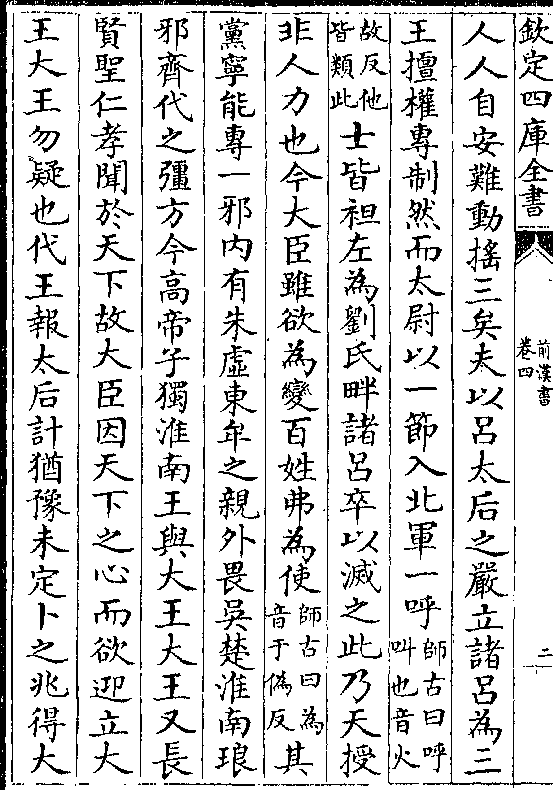 欽定四庫全書
前漢書
卷四
二
人人自安難動搖三矣夫以呂太后之嚴立諸呂為三
王擅權專制然而太尉以一節入北軍一呼師古曰呼叫也音火
故反他皆類此士皆袒左為劉氏畔諸呂卒以滅之此乃天授
非人力也今大臣雖欲為變百姓弗為使師古曰為音于偽反其
黨寧能專一邪内有朱虛東牟之親外畏吳楚淮南琅
邪齊代之彊方今高帝子獨淮南王與大王大王又長
賢聖仁孝聞於天下故大臣因天下之心而欲迎立大
王大王勿疑也代王報太后計猶豫未定卜之兆得大